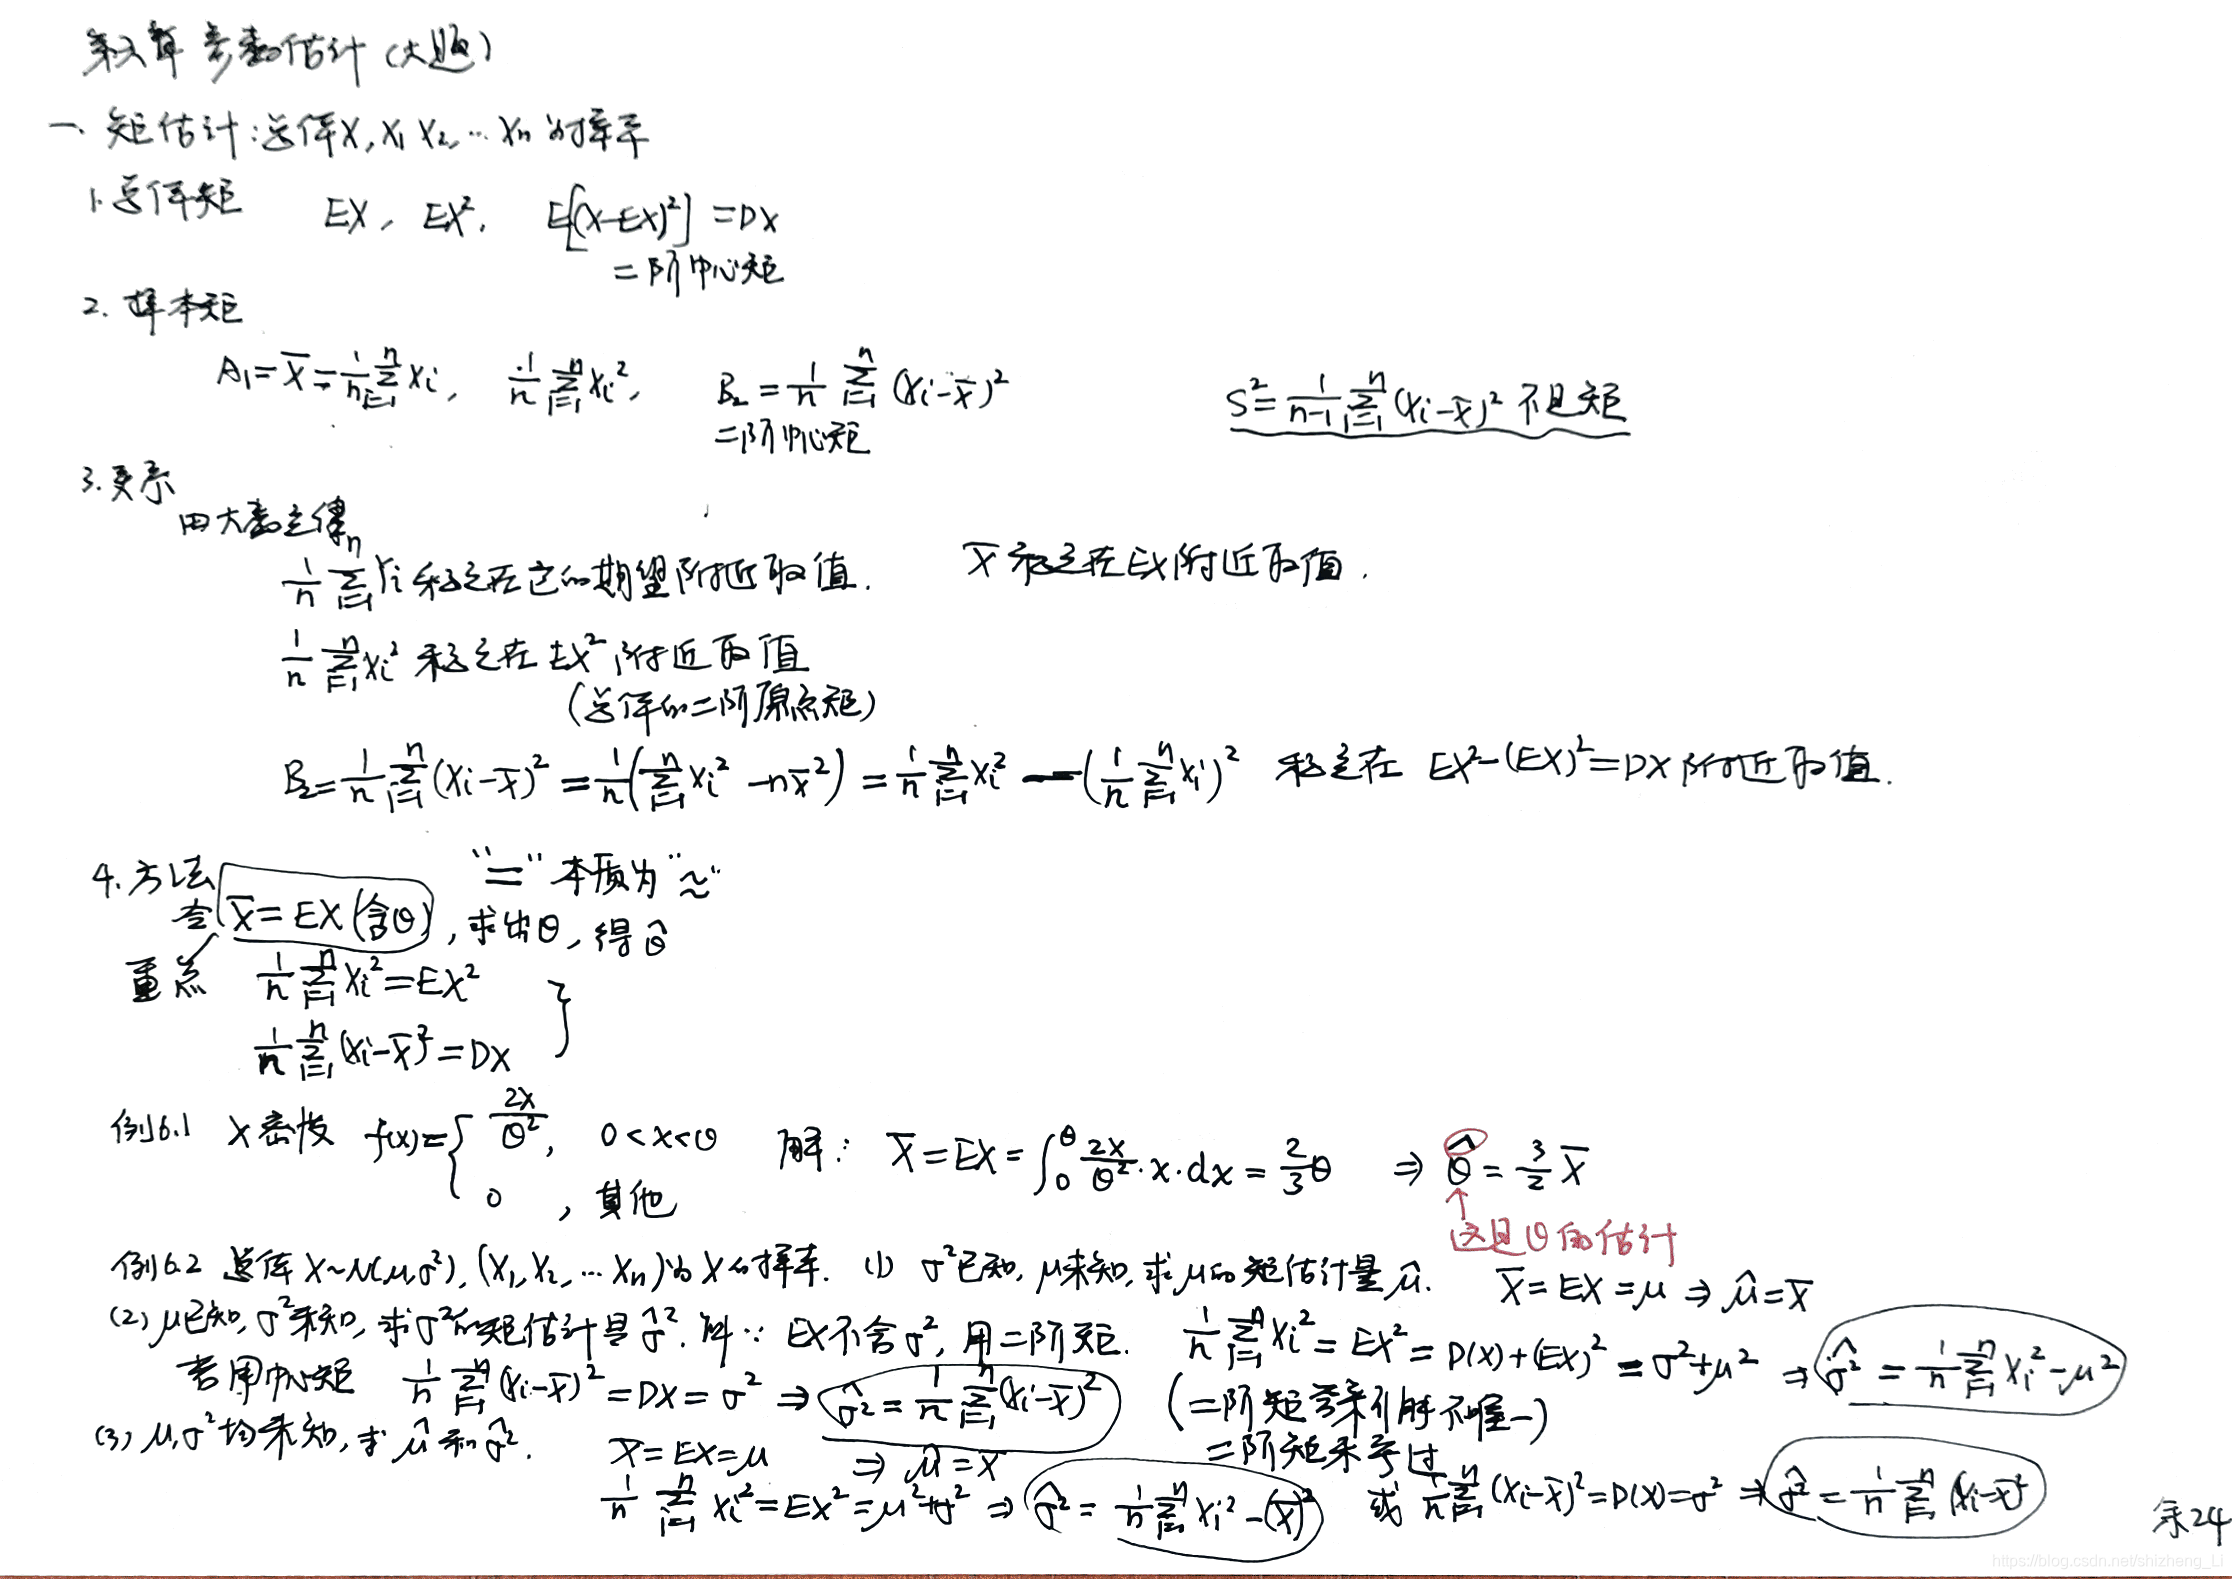 第六章 参数估计(大题)
一、矩估计:总体X, X₁ X₂, … Xₙ 为样本
1.总体矩 EX, EX², E[(X-EX)²] = DX
二阶中心矩
2. 样本矩
A₁ = X̄ = 1/n Σᵢ₌₁ⁿ Xᵢ, 1/n Σᵢ₌₁ⁿ Xᵢ², B₂ = 1/n Σᵢ₌₁ⁿ (Xᵢ-X̄)² S² = 1/(n-1) Σᵢ₌₁ⁿ (Xᵢ-X̄)² 不是矩
二阶中心矩
3.关系
由大数定律
1/n Σᵢ₌₁ⁿ Yᵢ 稳定在它的期望附近取值. X̄ 稳定在EX附近取值.
1/n Σᵢ₌₁ⁿ Xᵢ² 稳定在 EX² 附近取值
(总体的二阶原点矩)
B₂ = 1/n Σᵢ₌₁ⁿ (Xᵢ-X̄)² = 1/n (Σᵢ₌₁ⁿ Xᵢ² - nX̄²) = 1/n Σᵢ₌₁ⁿ Xᵢ² - (1/n Σᵢ₌₁ⁿ Xᵢ)² 稳定在 EX²-(EX)² = DX 附近取值.
4.方法 “=” 本质为 “≈”
令 X̄ = EX (含θ), 求出θ, 得 θ̂
重点 1/n Σᵢ₌₁ⁿ Xᵢ² = EX²
1/n Σᵢ₌₁ⁿ (Xᵢ-X̄)² = DX }
例6.1 X密度 f(x) = { 2x/θ², 0<x<θ 解: X̄ = EX = ∫₀^θ 2x/θ² · x · dx = 2/3 θ ⇒ θ̂ = 3/2 X̄
0 , 其他
这是θ的估计
例6.2 总体 X~N(μ,σ²), (X₁,X₂, … Xₙ)为X的样本. (1) σ²已知, μ未知, 求μ的矩估计量 μ̂. X̄ = EX = μ ⇒ μ̂ = X̄
(2) μ已知, σ²未知, 求σ²的矩估计量 σ̂². 解: ∵ EX不含σ², 用二阶矩. 1/n Σᵢ₌₁ⁿ Xᵢ² = EX² = D(X)+(EX)² = σ²+μ² ⇒ σ̂² = 1/n Σᵢ₌₁ⁿ Xᵢ² - μ²
若用中心矩 1/n Σᵢ₌₁ⁿ (Xᵢ-X̄)² = DX = σ² ⇒ σ̂² = 1/n Σᵢ₌₁ⁿ (Xᵢ-X̄)² (二阶矩 不唯一)
二阶矩
(3) μ, σ²均未知, 求 μ̂ 和 σ̂². X̄ = EX = μ ⇒ μ̂ = X̄
1/n Σᵢ₌₁ⁿ Xᵢ² = EX² = μ²+σ² ⇒ σ̂² = 1/n Σᵢ₌₁ⁿ Xᵢ² - (X̄)² 或 1/n Σᵢ₌₁ⁿ (Xᵢ-X̄)² = D(X) = σ² ⇒ σ̂² = 1/n Σᵢ₌₁ⁿ (Xᵢ-X̄)²
余24
https://blog.csdn.net/shizheng_Li